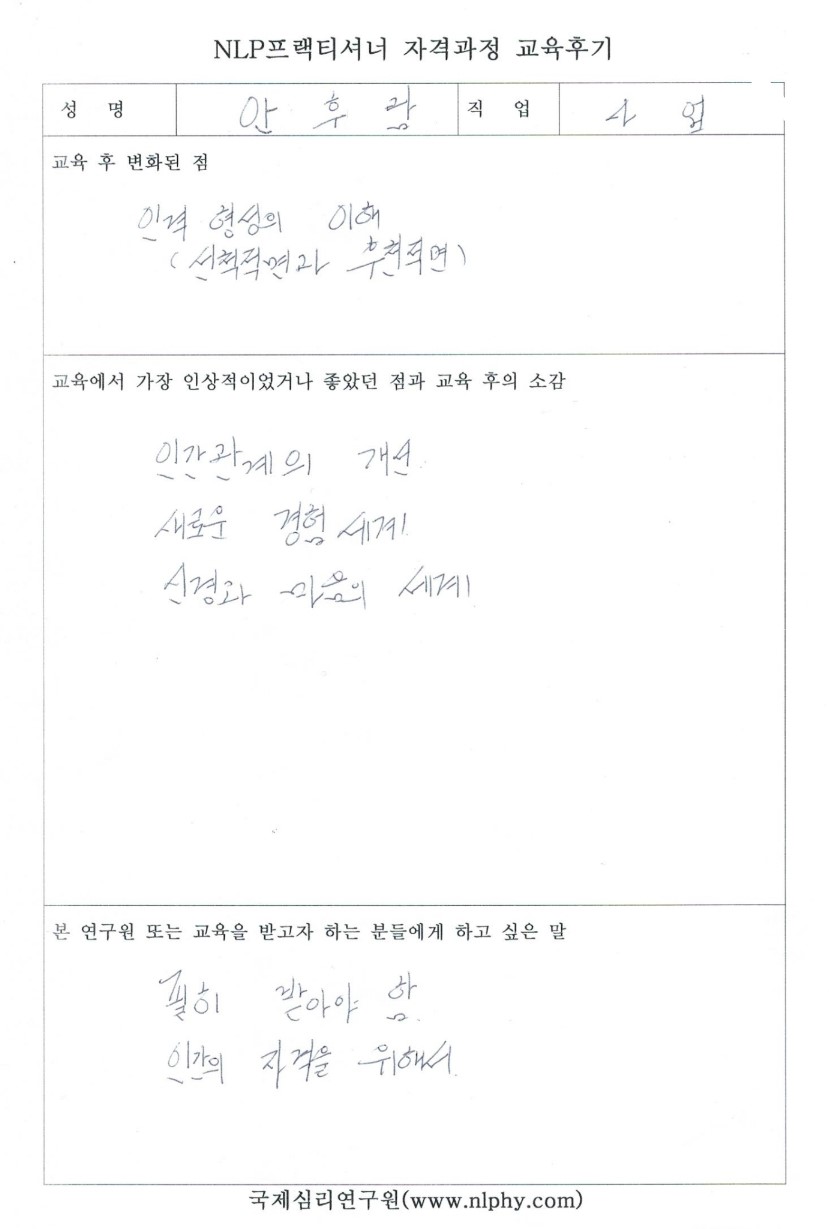 NLP프랙티셔너 자격과정 교육후기
성 명 안 후 람 직 업 사 업
교육 후 변화된 점
인격 형성의 이해
(선척적면과 후천적면)
교육에서 가장 인상적이었거나 좋았던 점과 교육 후의 소감
인간관계의 개선.
새로운 경험 세계.
신경과 마음의 세계
본 연구원 또는 교육을 받고자 하는 분들에게 하고 싶은 말
필히 받아야 함.
인간의 자격을 위해서.
국제심리연구원(www.nlphy.com)